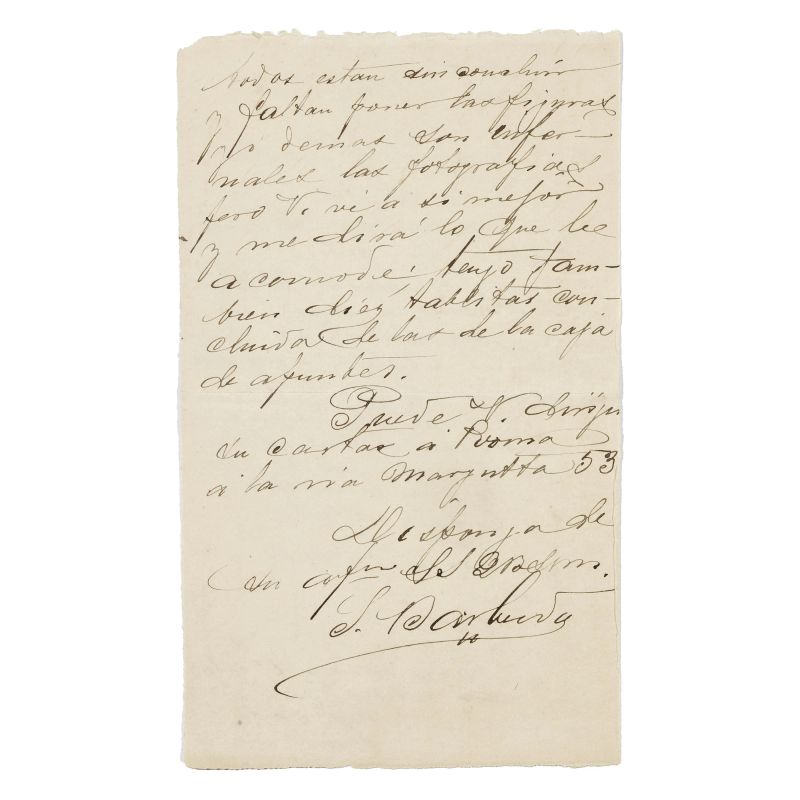 todos estan sin concluir
y faltan poner las figuras
y demas son infer-
nales las fotografias
pero V. ve a si mejor
y me dirá lo que le
acomode; tengo tam-
bien diez tablitas con-
cluida de las de la caja
de apuntes.
Puede V. dirijir
su cartas á Roma
a la via Margutta 53
Disponga de
su S. S. Q B S M.
S. Barbudo